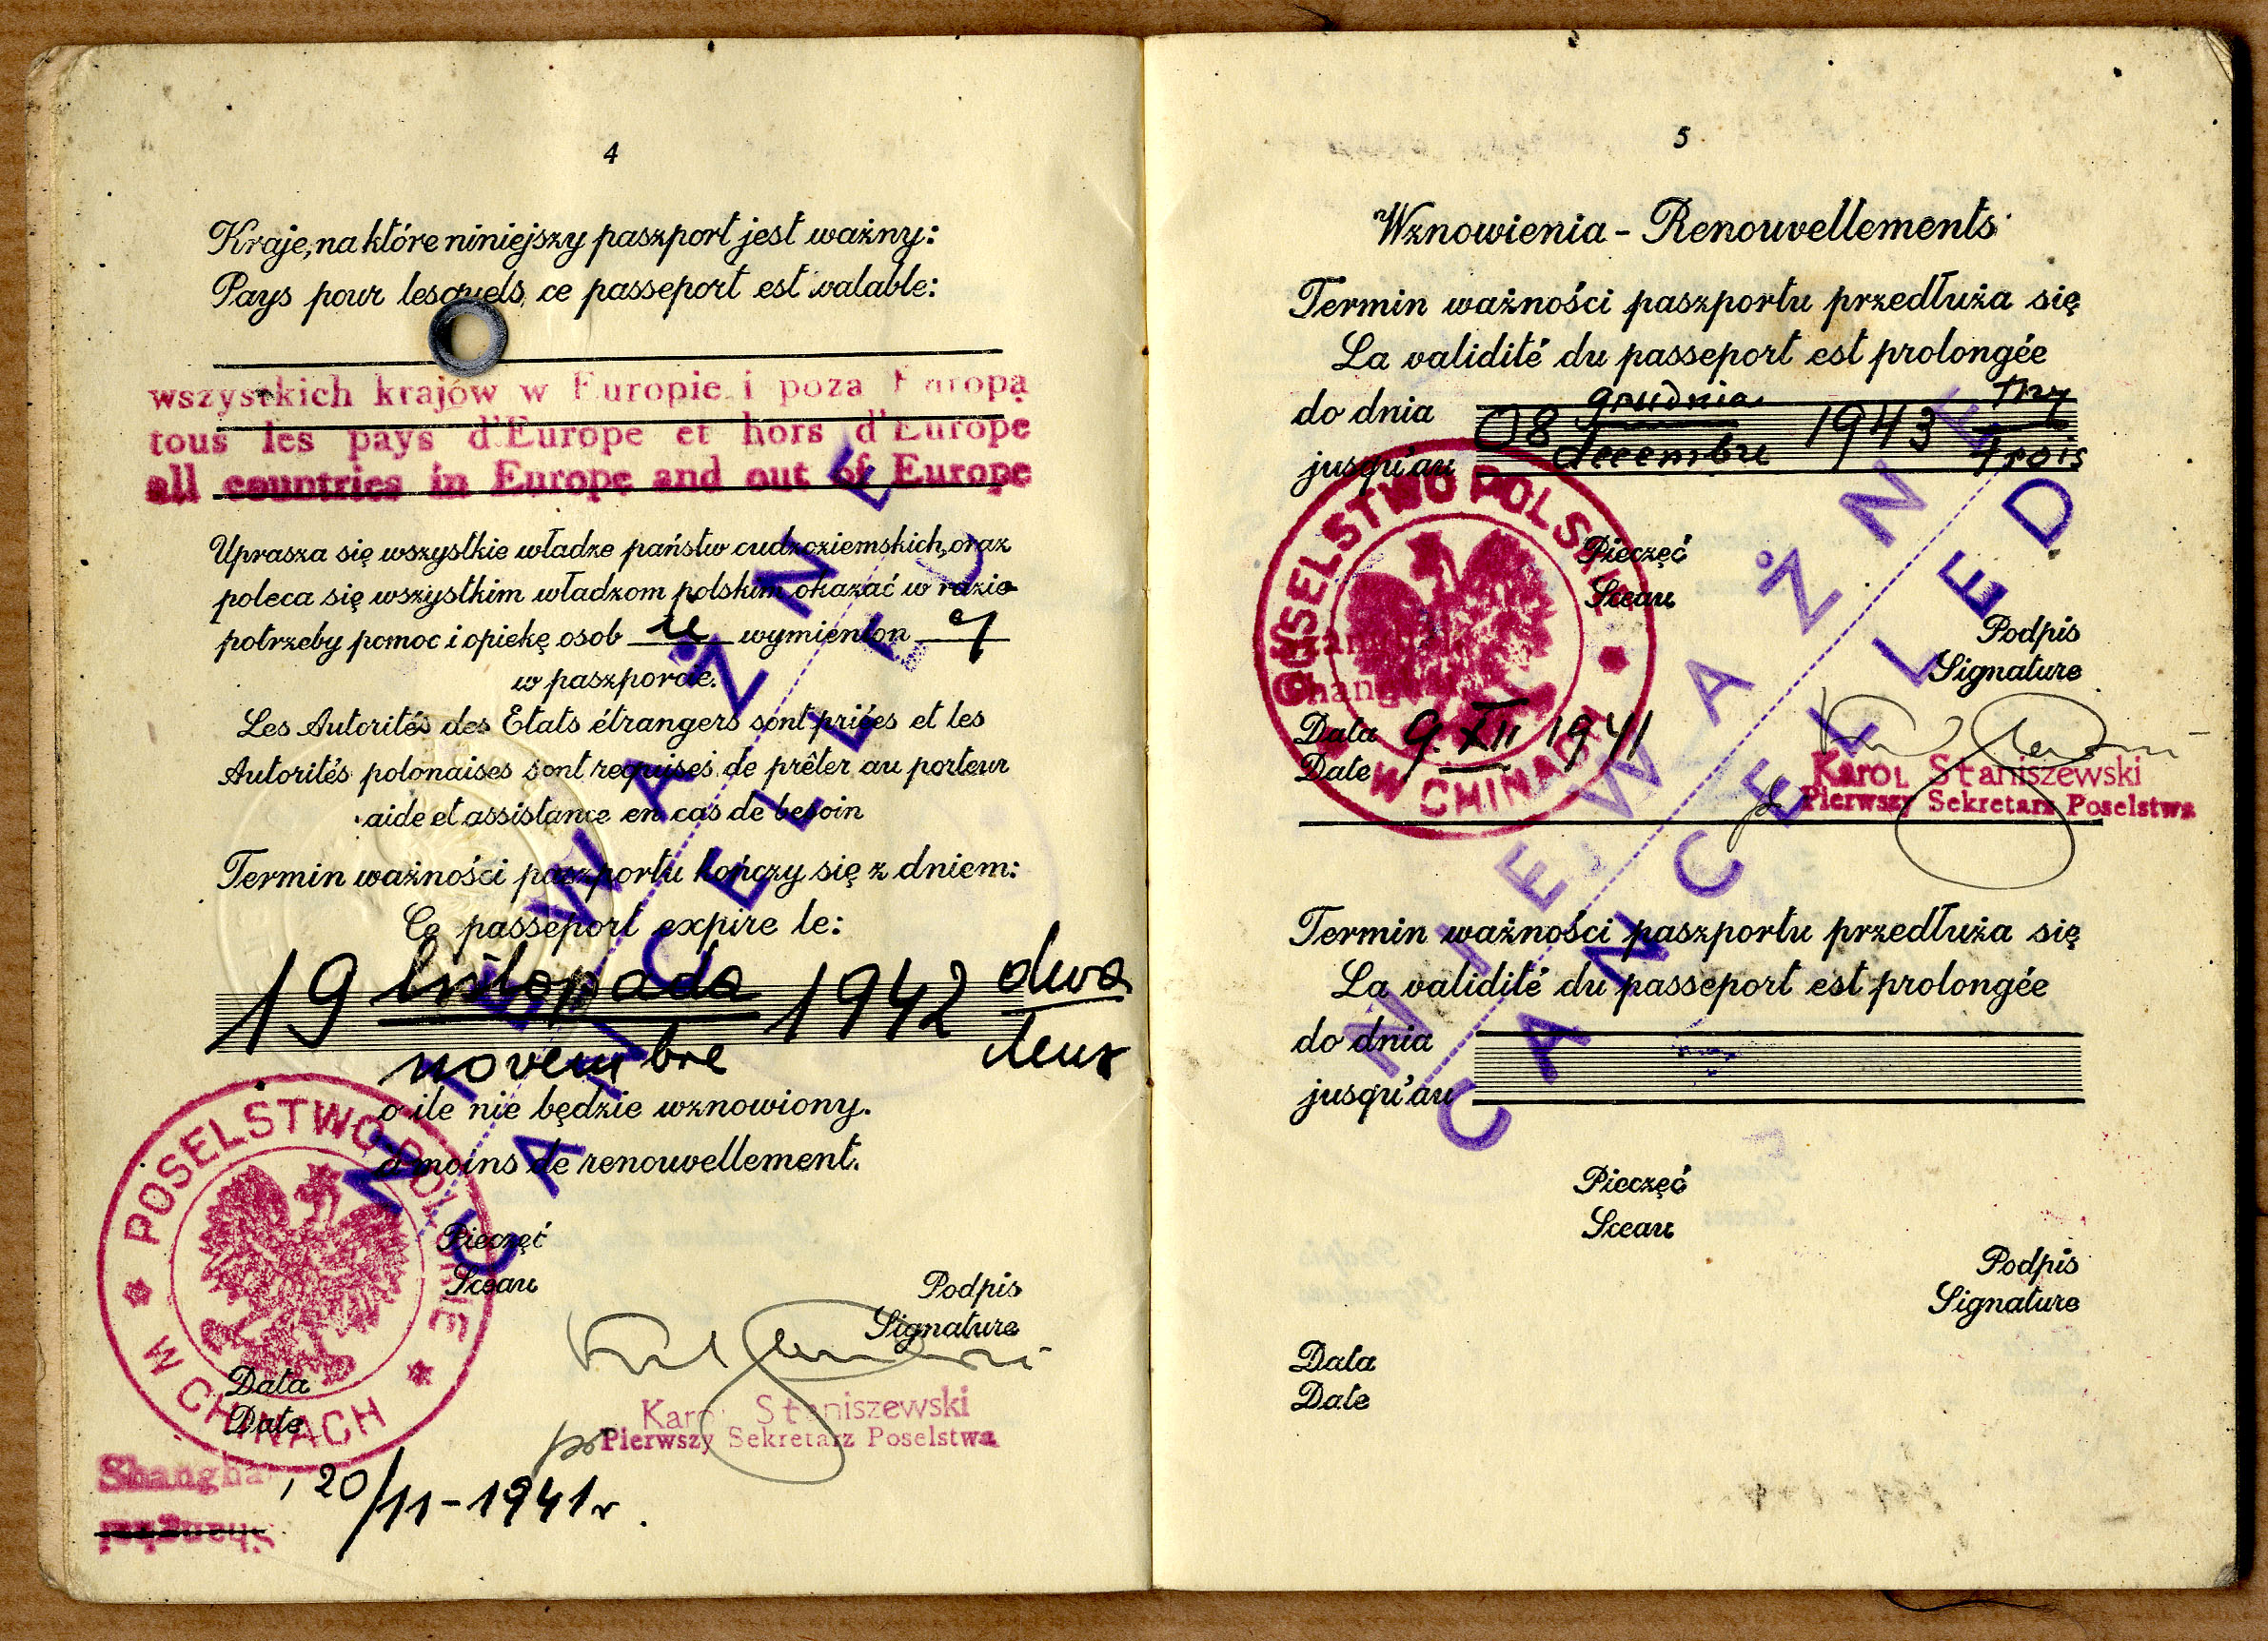 4
Kraje, na które niniejszy paszport jest ważny:
Pays pour lesquels ce passeport est valable:
wszystkich krajów w Europie i poza Europą
tous les pays d'Europe et hors d'Europe
all countries in Europe and out of Europe
Uprasza się wszystkie władze państw cudzoziemskich, oraz
poleca się wszystkim władzom polskim okazać w razie
potrzeby pomoc i opiekę osob ie wymienion ej
w paszporcie.
Les Autorités des Etats étrangers sont priées et les
Autorités polonaises sont requises de prêter au porteur
aide et assistance en cas de besoin
Termin ważności paszportu kończy się z dniem:
Ce passeport expire le:
19 listopada 1942 dwa
novembre deux
o ile nie będzie wznowiony.
à moins de renouvellement.
POSELSTWO POLSKIE
W CHINACH
Pieczęć
Sceau
Podpis
Signature
Data
Date
Karol Staniszewski
Pierwszy Sekretarz Poselstwa
Shanghai, 20/11-1941 r.
Shanghai
NIEWAŻNE
CANCELLED
5
Wznowienia - Renouvellements
Termin ważności paszportu przedłuża się
La validité du passeport est prolongée
do dnia 08 grudnia 1943 trzy
jusqu'au decembre trois
POSELSTWO POLSKIE
W CHINACH
Pieczęć
Sceau
Podpis
Signature
Data 9. XII 1941
Date
Karol Staniszewski
Pierwszy Sekretarz Poselstwa
Termin ważności paszportu przedłuża się
La validité du passeport est prolongée
do dnia
jusqu'au
Pieczęć
Sceau
Podpis
Signature
Data
Date
NIEWAŻNE
CANCELLED